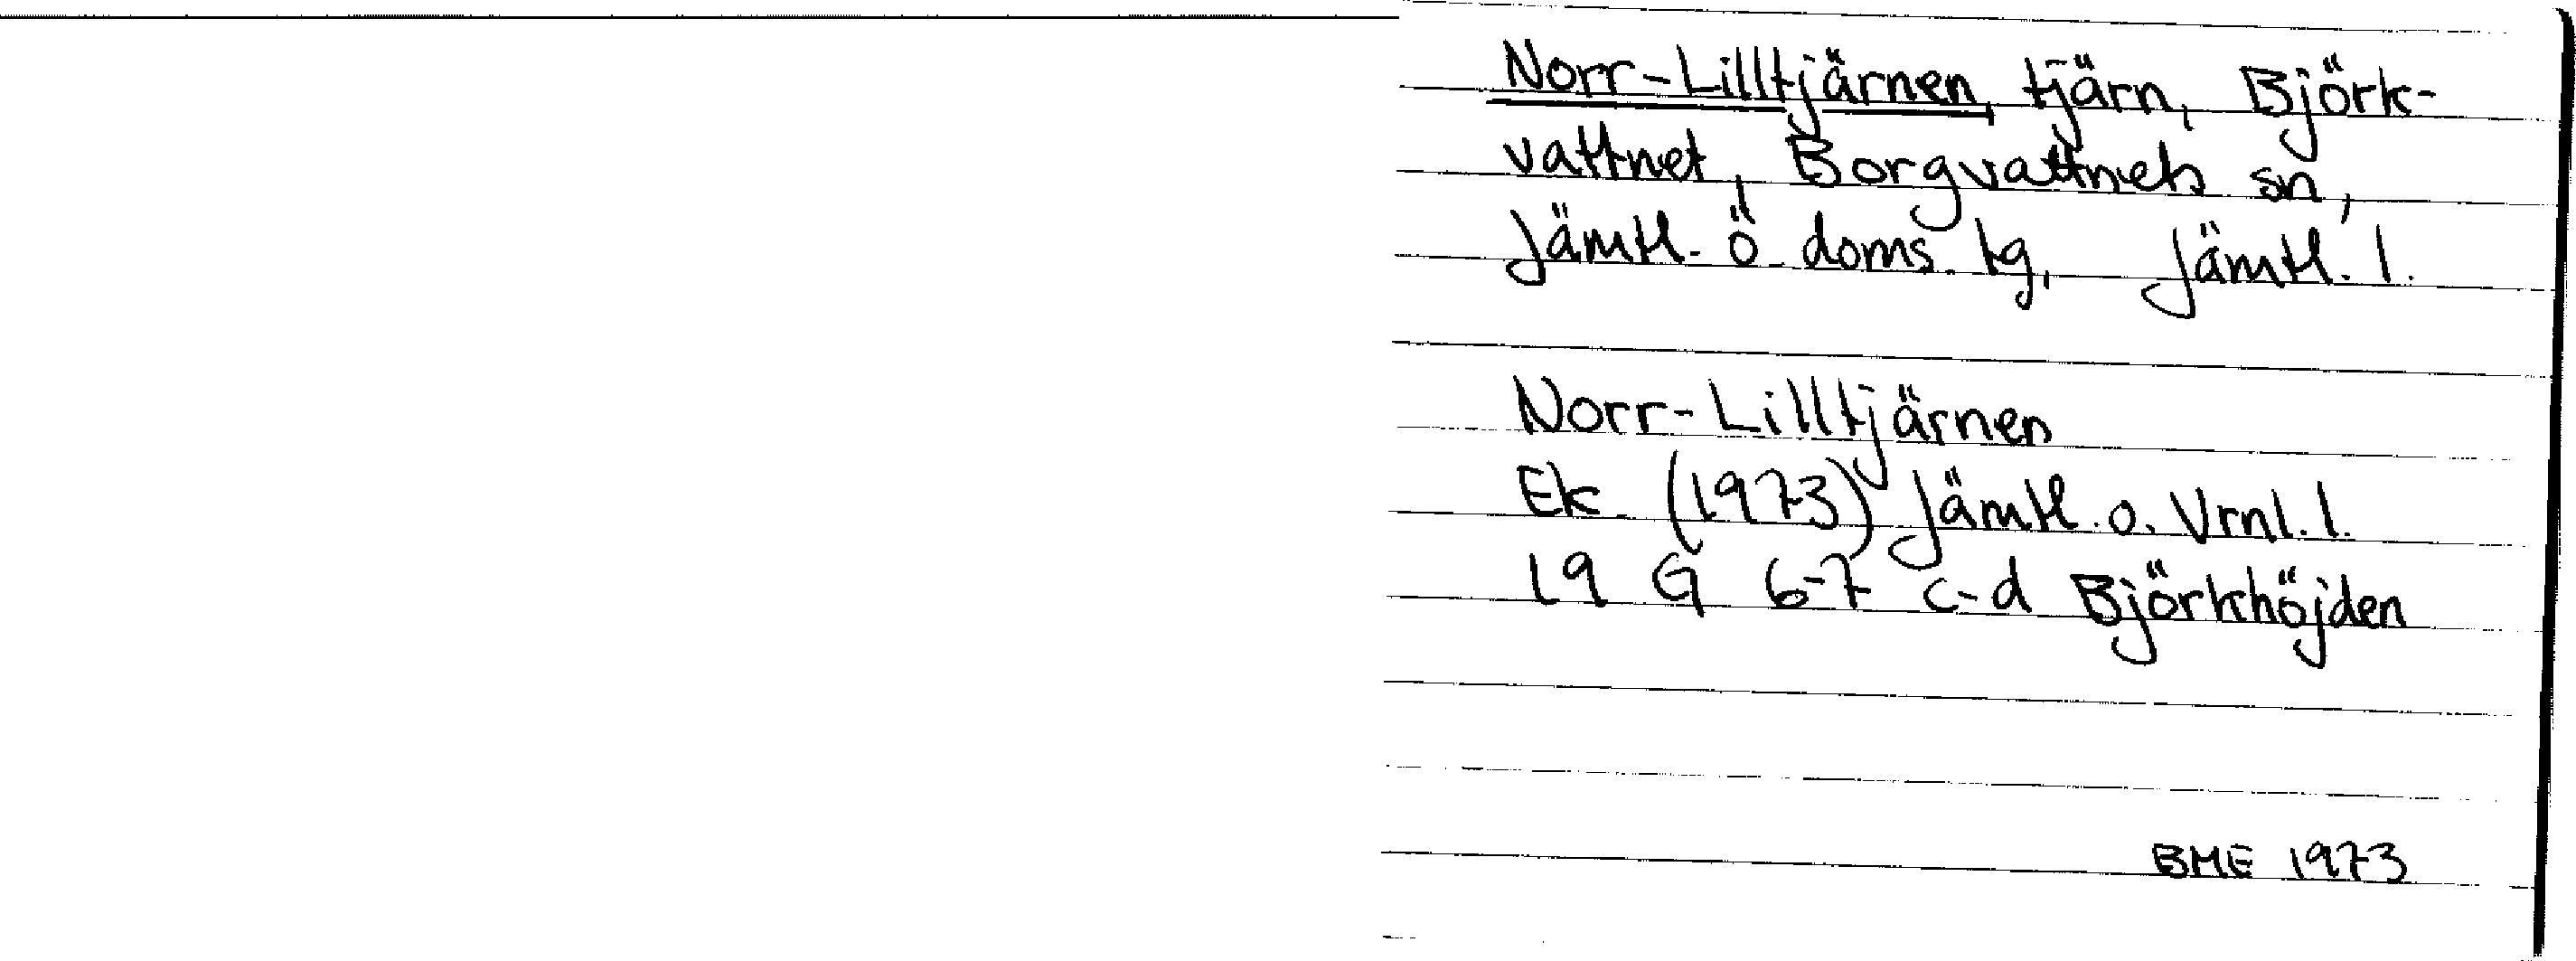 Norr-Lilltjärnen, tjärn, Björk-
vattnet, Borgvattnets sn,
Jämtl. ö. doms. tg, Jämtl. l.
Norr-Lilltjärnen
Ek. (1973) Jämtl. o. Vrnl. l.
19 G 6-7 c-d Björkhöjden
BME 1973